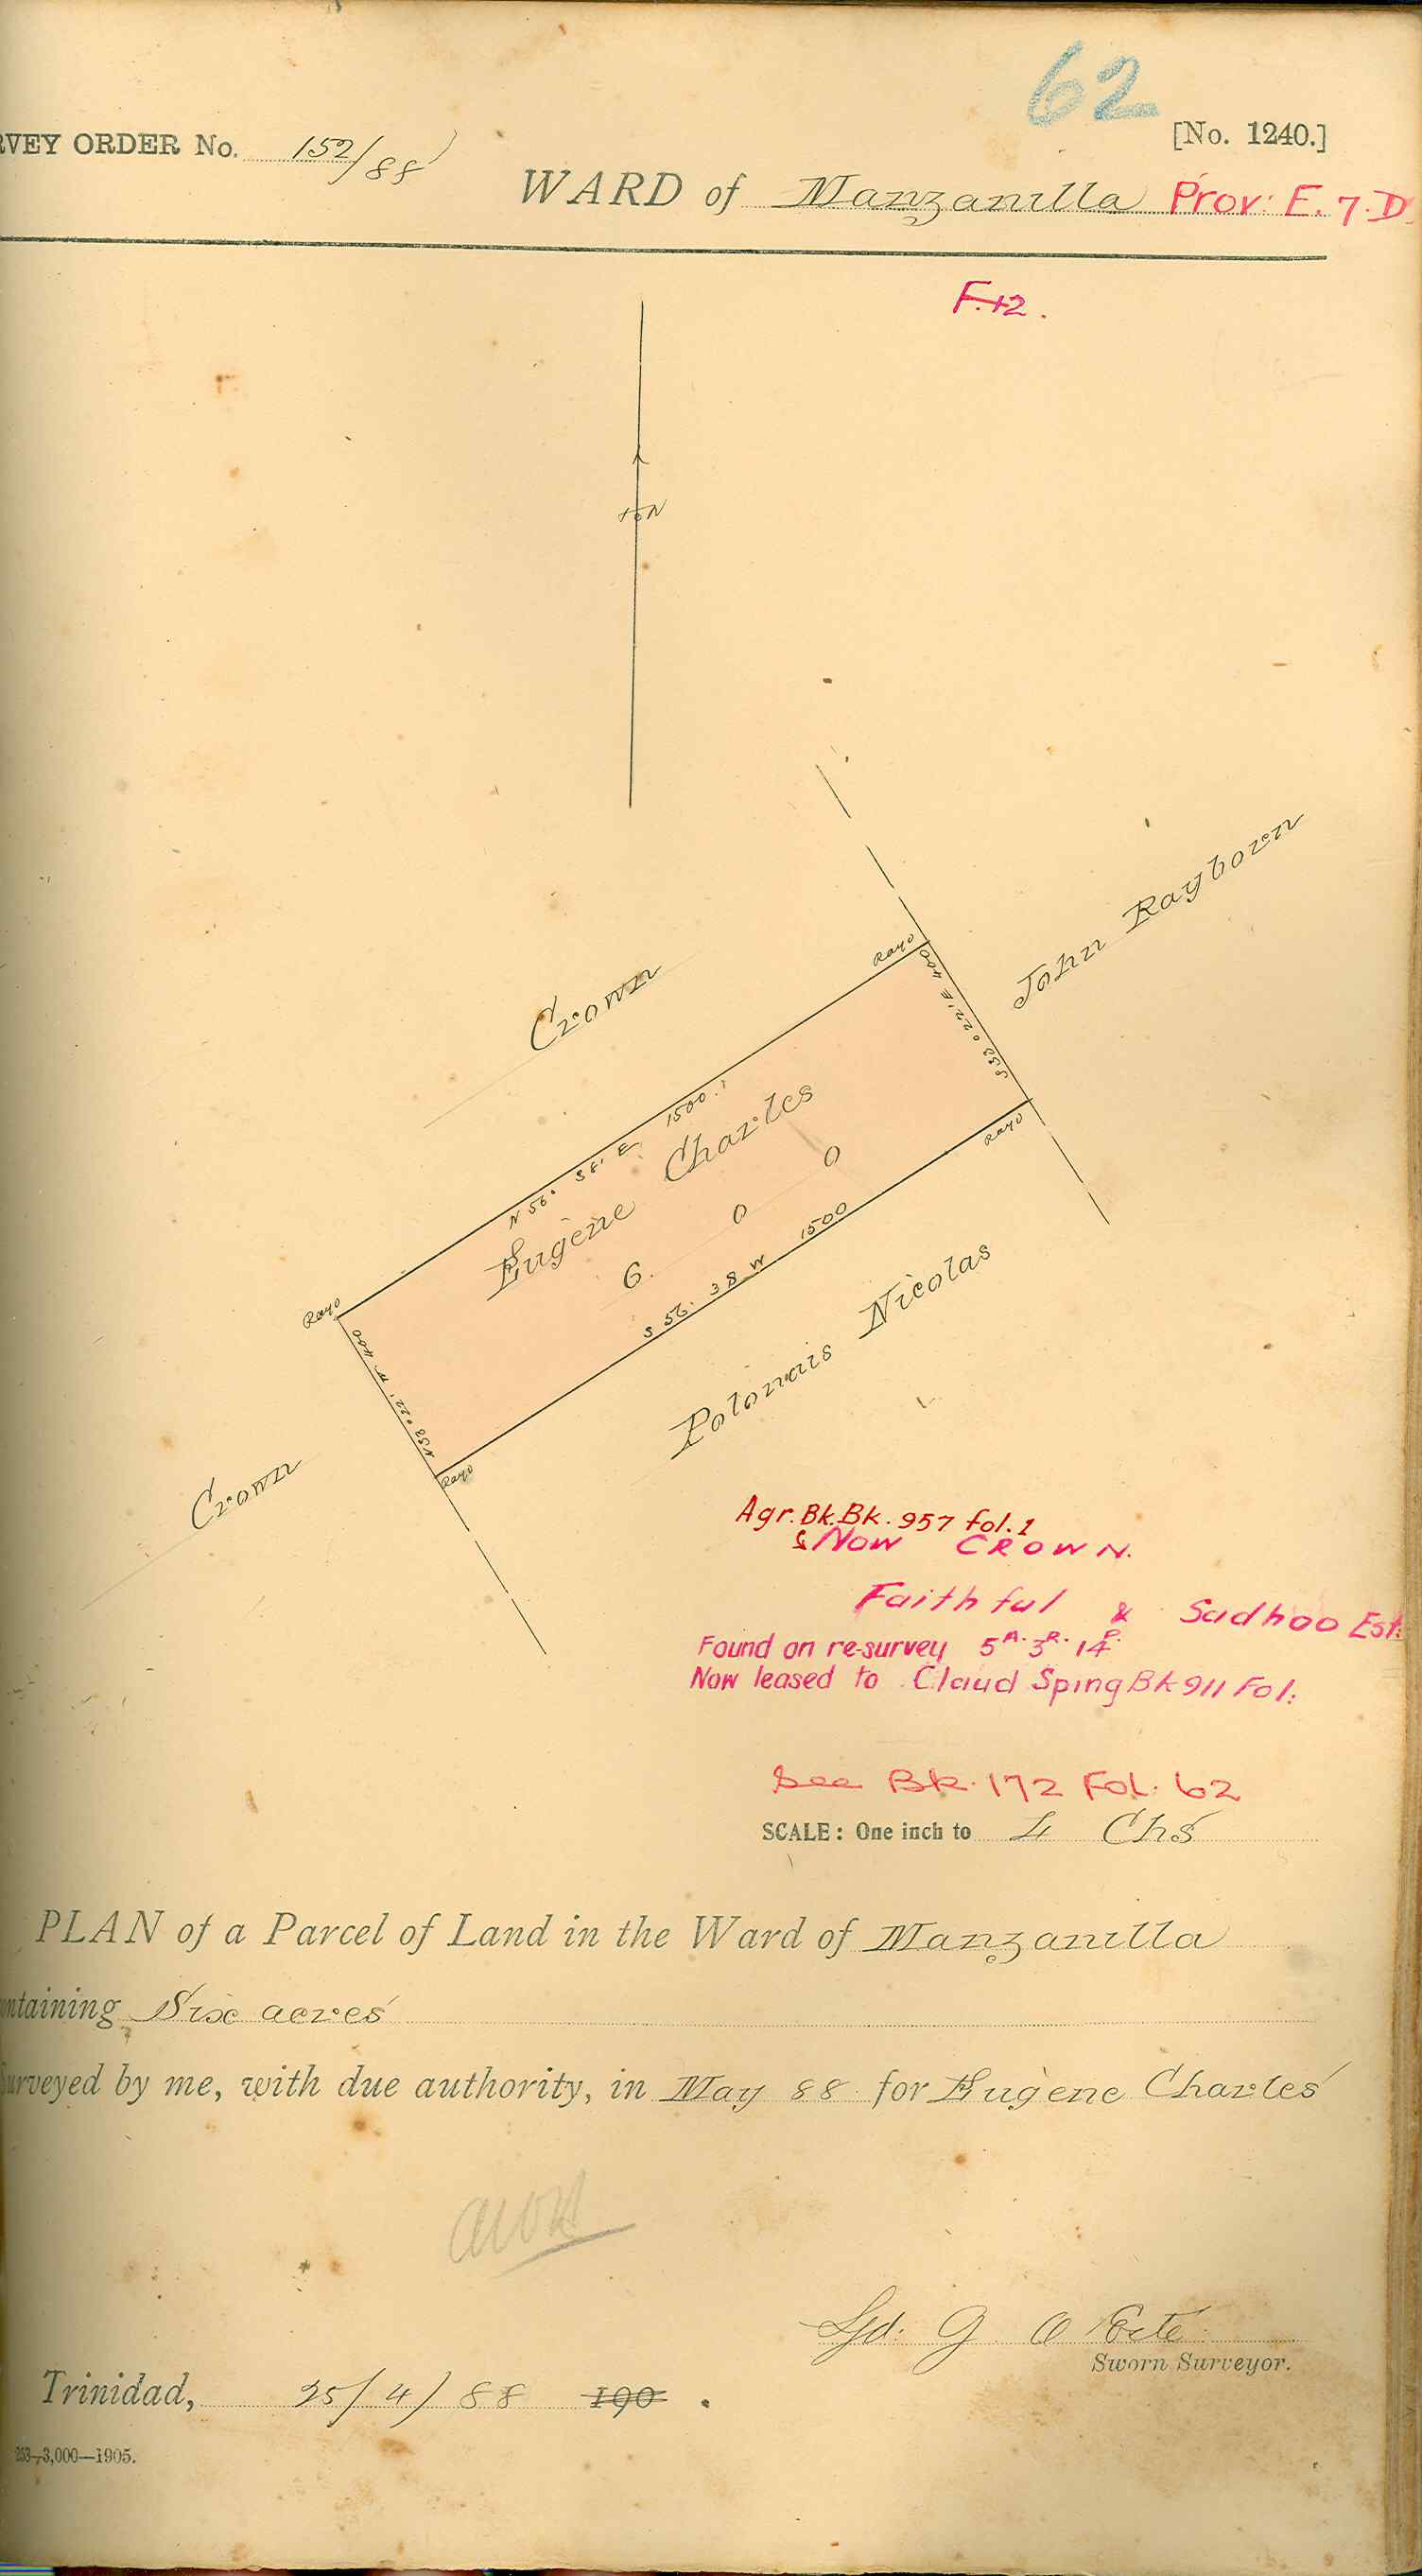 62
RVEY ORDER No. 152/88
[No. 1240.]
WARD of Manzanilla Prov: E. 7. D
to N
John Rayborn
Crown
Rayo
S33°22'E 400
N 56° 38' E 1500
Eugène Charles
6. 0 0
Rayo
Rayo
S 56. 38 W 1500
N33°22' W 400
Polonais Nicolas
Rayo
Crown
Agr. Bk. Bk. 957 fol. 1
& Now CROWN.
Faithful & Sadhoo Est.
Found on re-survey 5A. 3R. 14P.
Now leased to Claud Sping Bk 911 Fol:
See Bk. 172 Fol. 62
SCALE: One inch to 4 Chs
PLAN of a Parcel of Land in the Ward of Manzanilla
ontaining Six acres
urveyed by me, with due authority, in May 88 for Eugène Charles
Sgd: G. O
Sworn Surveyor.
Trinidad, 25/4/88 190 .
3,000—1905.